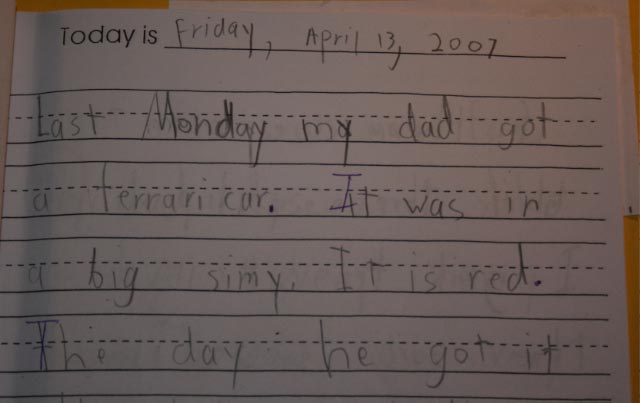 Today is Friday, April 13, 2007
Last Monday my dad got
a ferrari car. It was in
a big simy. It is red.
The day he got it